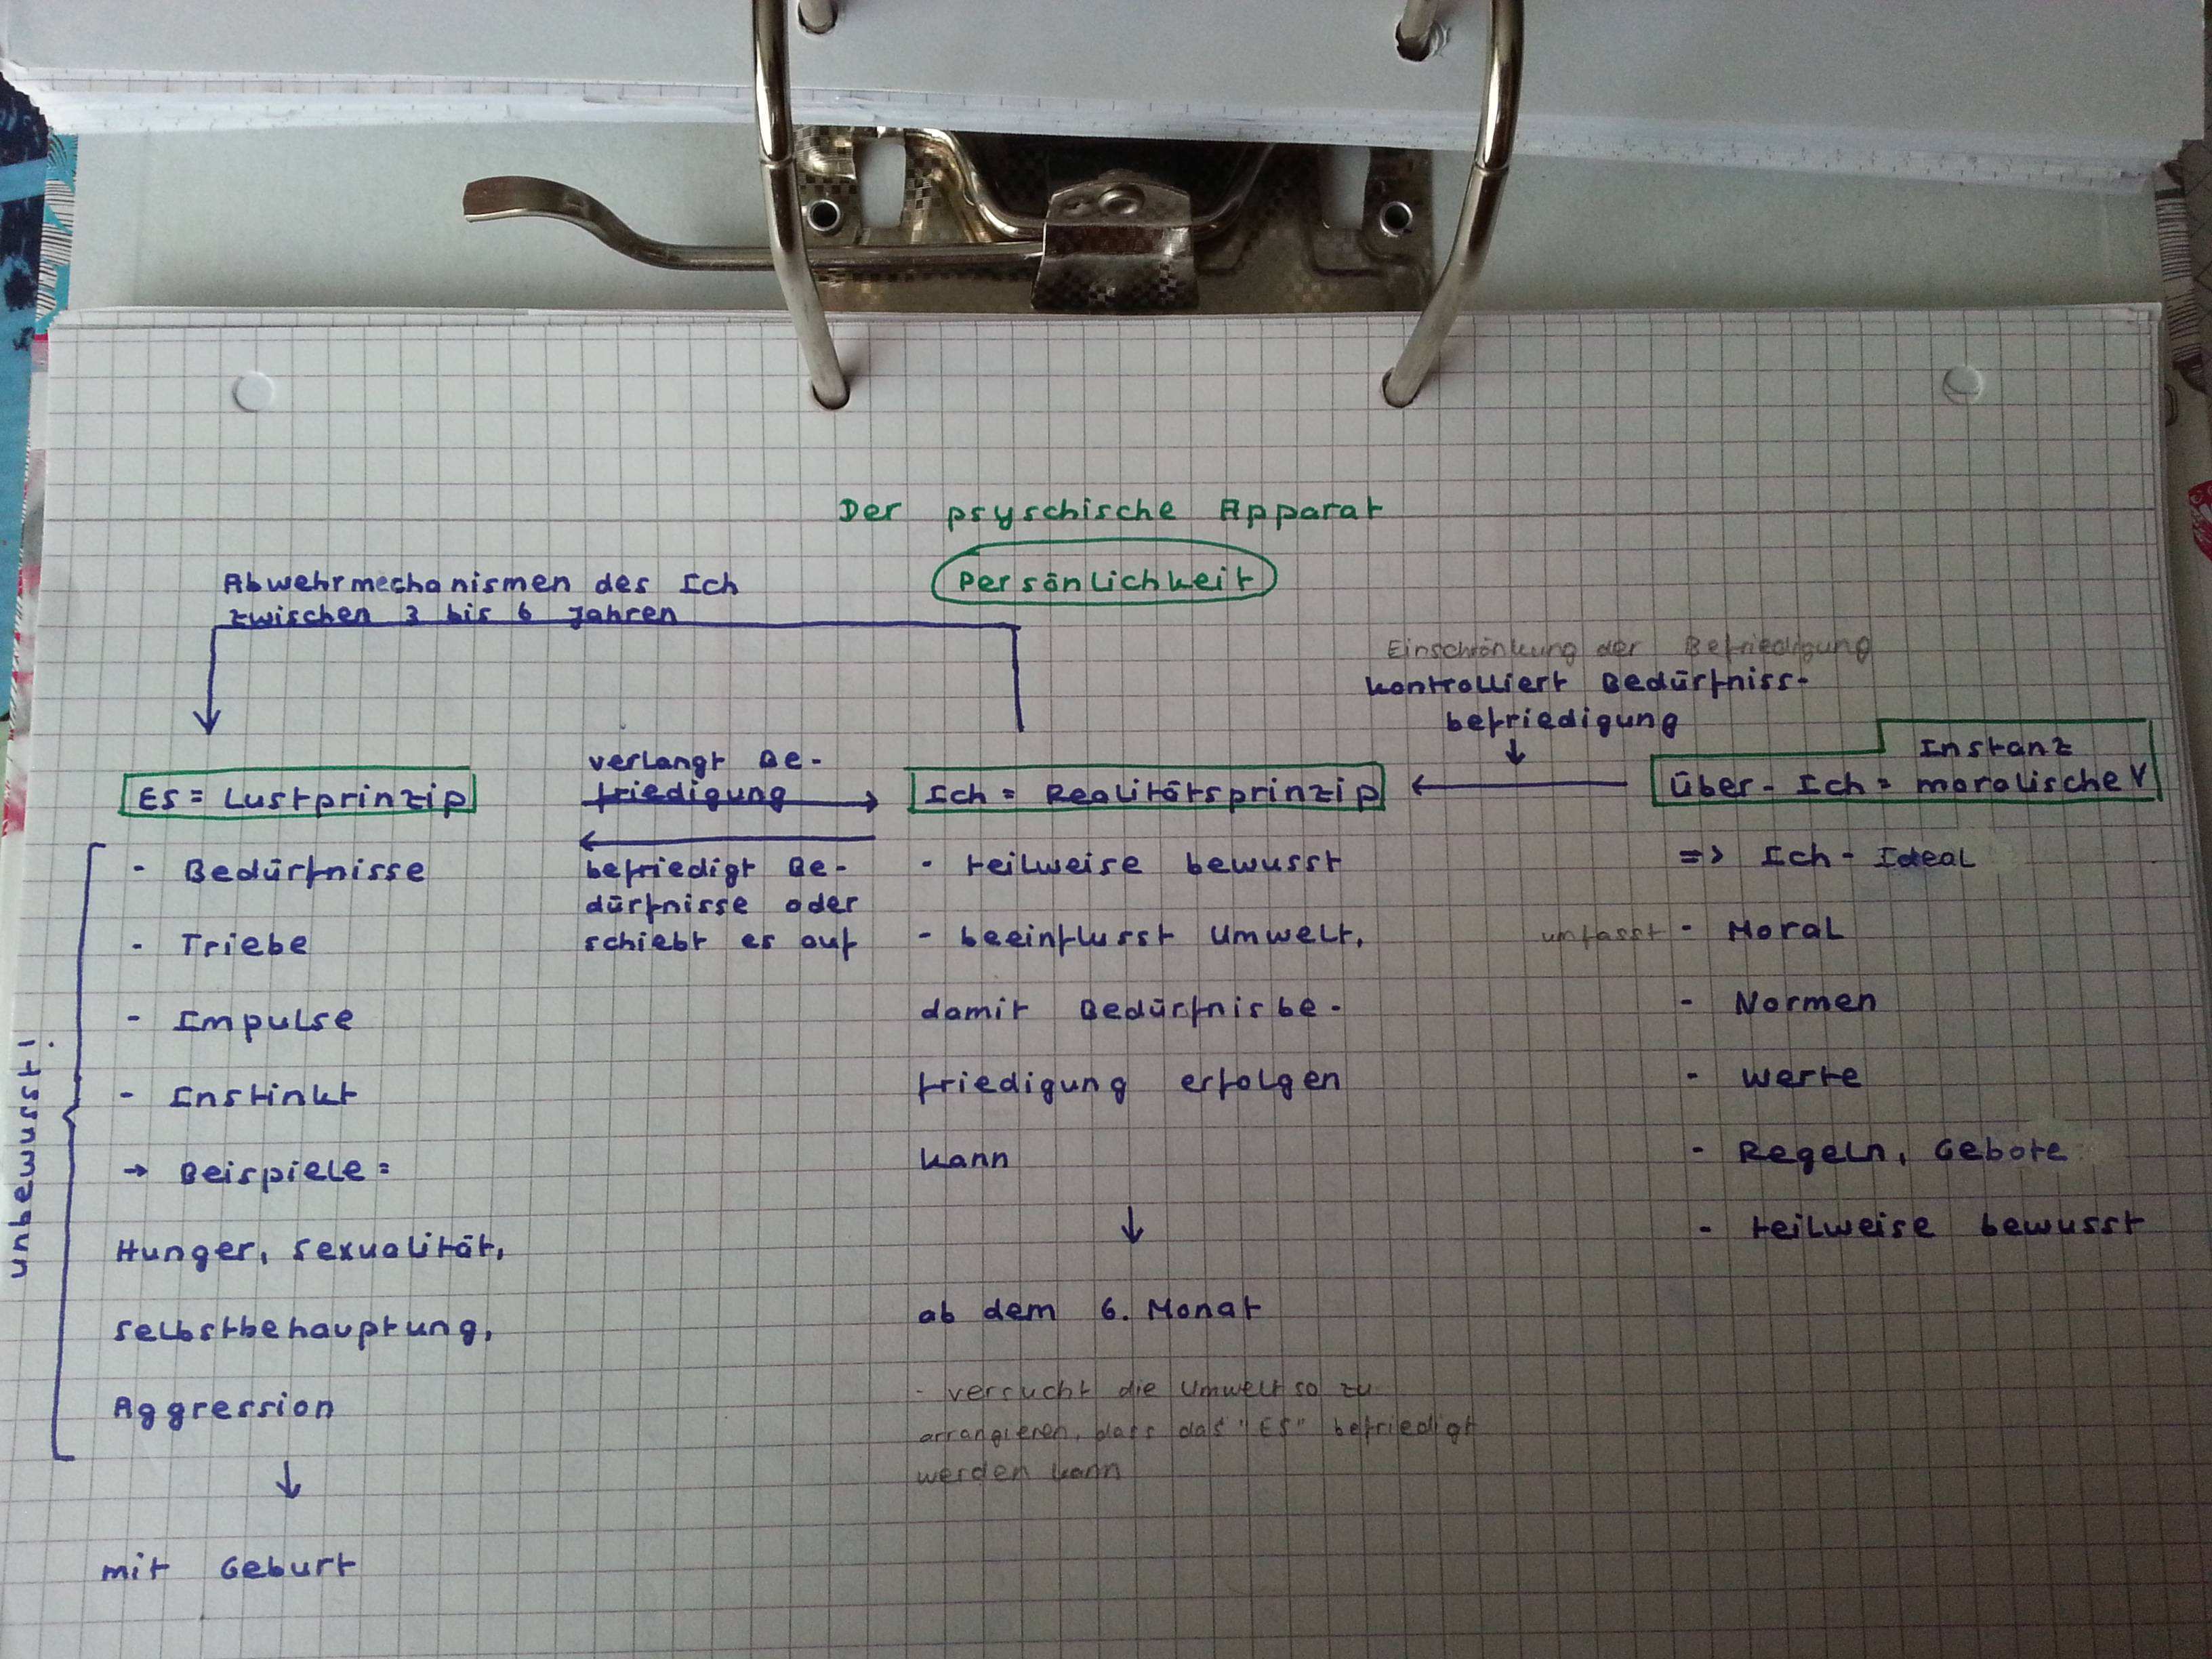 Der psyschische Apparat
Persönlichkeit
Abwehrmechanismen des Ich
zwischen 3 bis 6 Jahren
Einschränkung der Befriedigung
kontrolliert Bedürfniss-
befriedigung
ES = Lustprinzip
verlangt Be-
friedigung
befriedigt Be-
dürfnisse oder
schiebt es auf
Ich = Realitätsprinzip
Instanz
Über-Ich = moralische
unbewusst!
- Bedürfnisse
- Triebe
- Impulse
- Instinkt
→ Beispiele:
Hunger, Sexualität,
Selbstbehauptung,
Aggression
↓
mit Geburt
- teilweise bewusst
- beeinflusst Umwelt,
damit Bedürfnisbe-
friedigung erfolgen
kann
↓
ab dem 6. Monat
- versucht die Umwelt so zu
arrangieren, dass das "ES" befriedigt
werden kann
=> Ich-Ideal
umfasst - Moral
- Normen
- Werte
- Regeln, Gebote
- teilweise bewusst